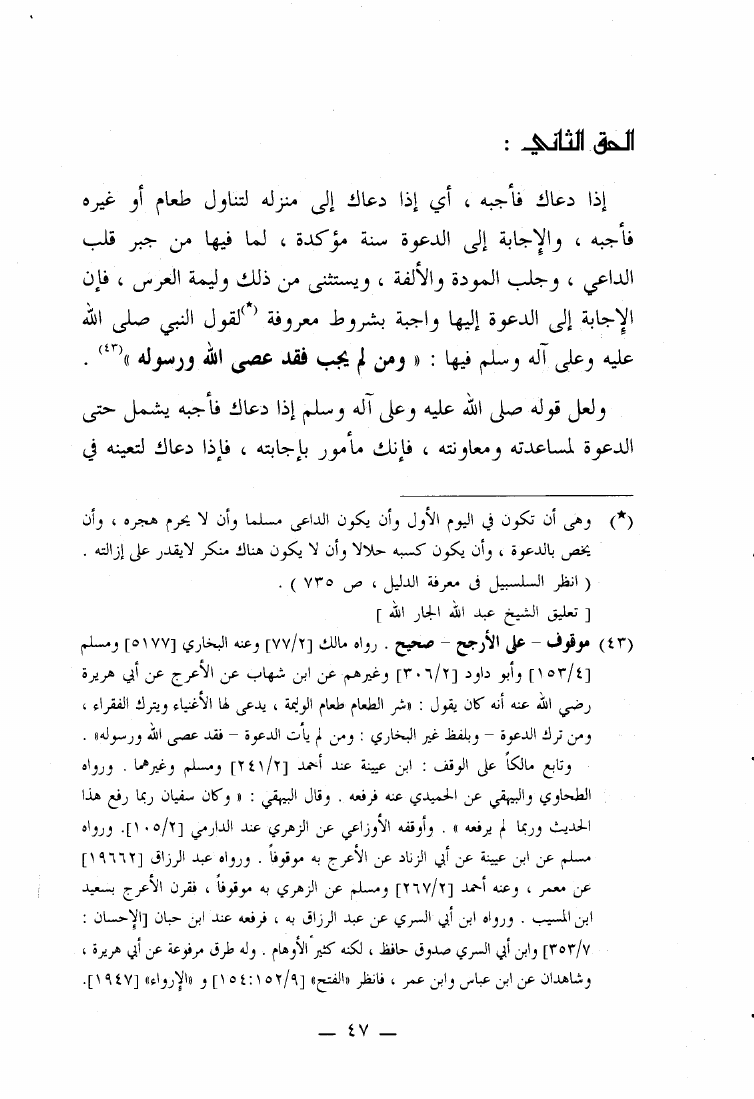 الحق الثاني :
إذا دعاك فأجبه ، أي إذا دعاك إلى منزله لتناول طعام أو غيره
فأجبه ، والإجابة إلى الدعوة سنة مؤكدة ، لما فيها من جبر قلب
الداعي ، وجلب المودة والألفة ، ويستثنى من ذلك وليمة العرس ، فإن
الإجابة إلى الدعوة إليها واجبة بشروط معروفة (*) لقول النبي صلى الله
عليه وعلى آله وسلم فيها : « ومن لم يجب فقد عصى الله ورسوله »(٤٣) .
ولعل قوله صلى الله عليه وعلى آله وسلم إذا دعاك فأجبه يشمل حتى
الدعوة لمساعدته ومعاونته ، فإنك مأمور بإجابته ، فإذا دعاك لتعينه في
(*) وهى أن تكون في اليوم الأول وأن يكون الداعى مسلما وأن لا يحرم هجره ، وأن
يخص بالدعوة ، وأن يكون كسبه حلالا وأن لا يكون هناك منكر لايقدر على إزالته .
( انظر السلسبيل فى معرفة الدليل ، ص ٧٣٥ ) .
[ تعليق الشيخ عبد الله الجار الله ]
(٤٣) موقوف – على الأرجح – صحيح . رواه مالك [٧٧/٢] وعنه البخاري [٥١٧٧] ومسلم
[١٥٣/٤] وأبو داود [٣٠٦/٢] وغيرهم عن ابن شهاب عن الأعرج عن أبي هريرة
رضي الله عنه أنه كان يقول : «شر الطعام طعام الوليمة ، يدعى لها الأغنياء ويترك الفقراء ،
ومن ترك الدعوة – وبلفظ غير البخاري : ومن لم يأت الدعوة – فقد عصى الله ورسوله» .
وتابع مالكاً على الوقف : ابن عيينة عند أحمد [٢٤١/٢] ومسلم وغيرهما . ورواه
الطحاوي والبيهقي عن الحميدي عنه فرفعه . وقال البيهقي : « وكان سفيان ربما رفع هذا
الحديث وربما لم يرفعه » . وأوقفه الأوزاعي عن الزهري عند الدارمي [١٠٥/٢]. ورواه
مسلم عن ابن عيينة عن أبي الزناد عن الأعرج به موقوفاً . ورواه عبد الرزاق [١٩٦٦٢]
عن معمر ، وعنه أحمد [٢٦٧/٢] ومسلم عن الزهري به موقوفاً ، فقرن الأعرج بسعيد
ابن المسيب . ورواه ابن أبي السري عن عبد الرزاق به ، فرفعه عند ابن حبان [الإحسان :
٣٥٣/٧] وابن أبي السري صدوق حافظ ، لكنه كثير الأوهام . وله طرق مرفوعة عن أبي هريرة ،
وشاهدان عن ابن عباس وابن عمر ، فانظر «الفتح» [١٥٤:١٥٢/٩] و «الإرواء» [١٩٤٧].
– ٤٧ –